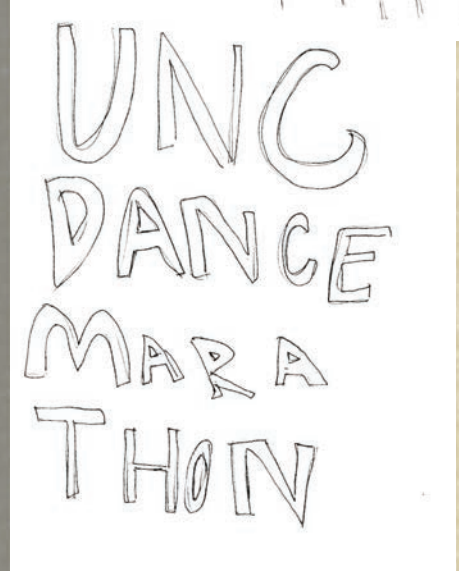 UNC
DANCE
MARA
THON